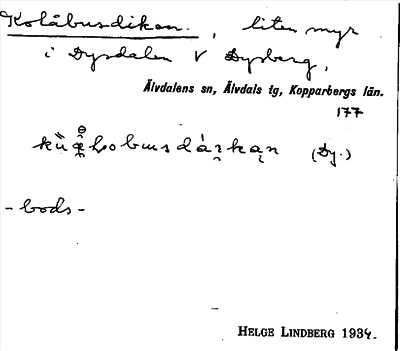 Kolåbusdiken. , liten myr
i Dysdalen V Dysberg,
Älvdalens sn, Älvdals tg, Kopparbergs län.
177
(Dy.)
-bods-
HELGE LINDBERG 1934.